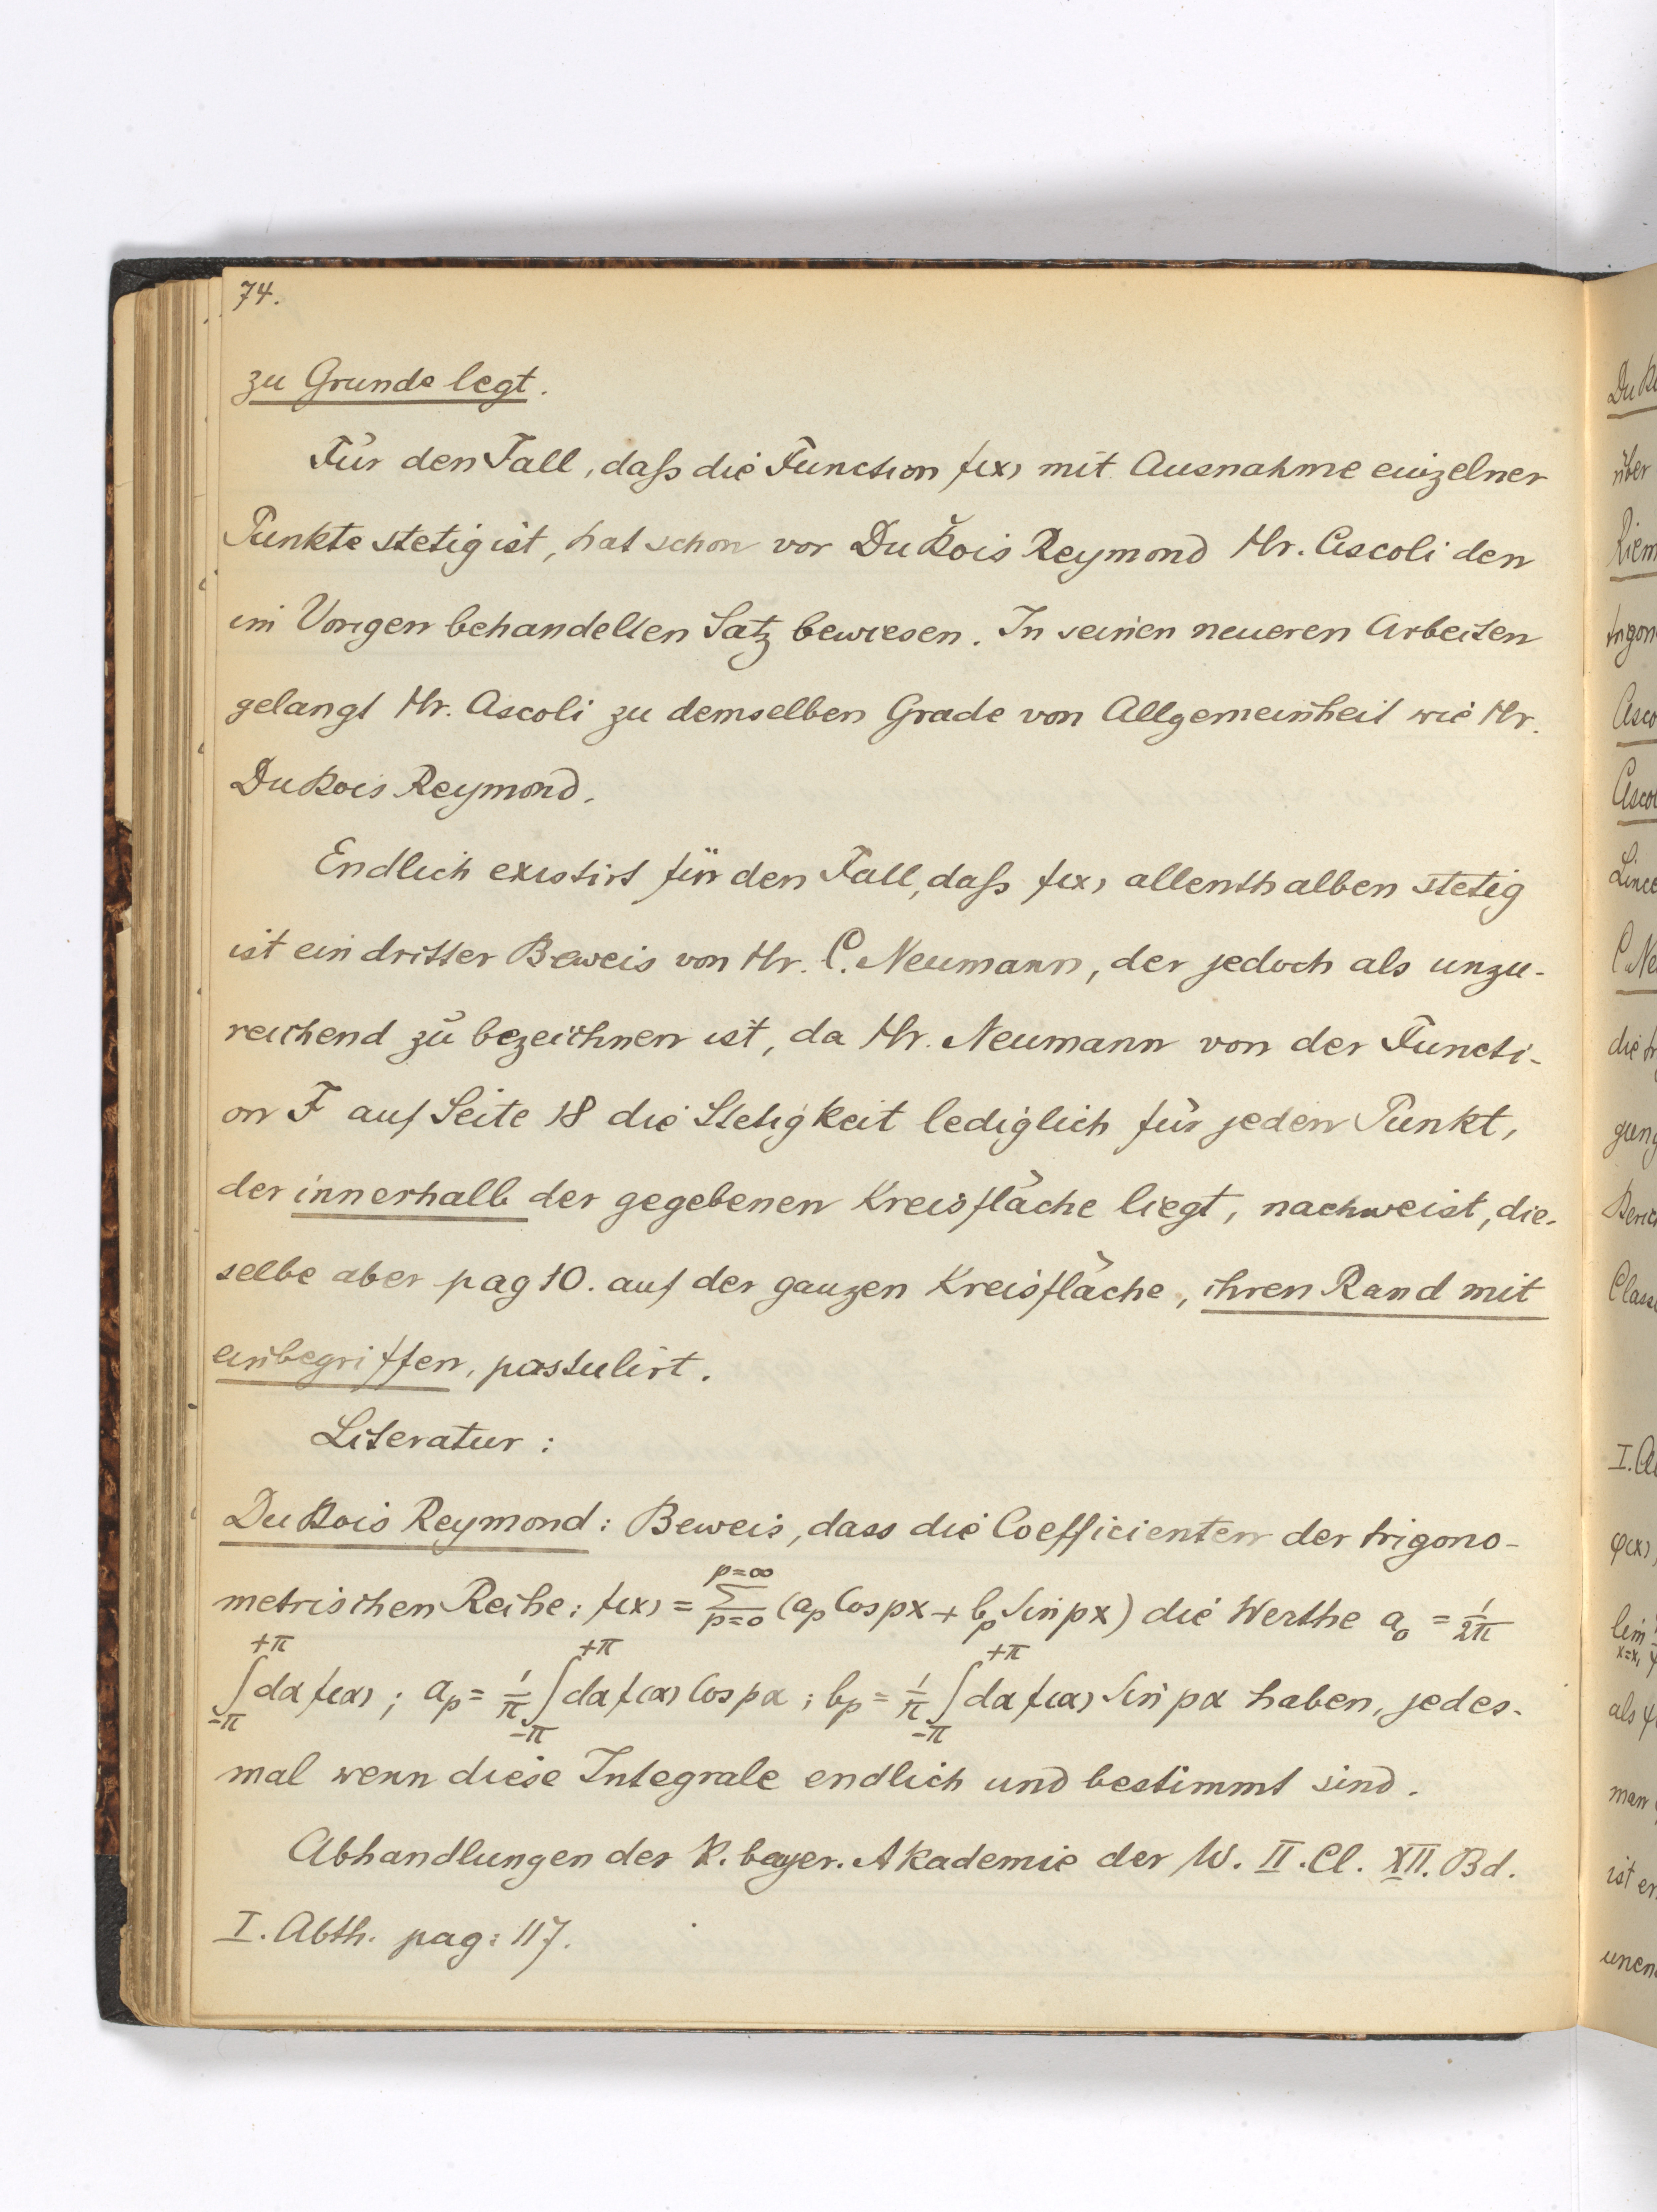 74.
zu Grunde legt.
Für den Fall, daſs die Function f(x) mit Ausnahme einzelner
Punkte stetig ist, hat schon vor Du Bois Reymond Hr. Ascoli den
im Vorigen behandelten Satz bewiesen. In seinen neueren Arbeiten
gelangt Hr. Ascoli zu demselben Grade von Allgemeinheit wie Hr.
Du Bois Reymond.
Endlich existirt für den Fall, daſs f(x) allenthalben stetig
ist ein dritter Beweis von Hr. C. Neumann, der jedoch als unzu-
reichend zu bezeichnen ist, da Hr. Neumann von der Functi-
on F auf Seite 18 die Stetigkeit lediglich für jeden Punkt,
der innerhalb der gegebenen Kreisfläche liegt, nachweist, die-
selbe aber pag 10. auf der ganzen Kreisfläche, ihren Rand mit
einbegriffen, postulirt.
Literatur:
Du Bois Reymond: Beweis, dass die Coefficienten der trigono-
metrischen Reihe: f(x) = \sum_{p=0}^{p=∞} (a_p Cos px + b_p Sin px) die Werthe a_0 = \frac{1}{2π}
\int_{-π}^{+π} dα f(α); a_p = \frac{1}{π} \int_{-π}^{+π} dα f(α) Cos pα; b_p = \frac{1}{π} \int_{-π}^{+π} dα f(α) Sin pα haben, jedes-
mal wenn diese Integrale endlich und bestimmt sind.
Abhandlungen der K. bayer. Akademie der W. II. Cl. XII. Bd.
I. Abth. pag: 117.